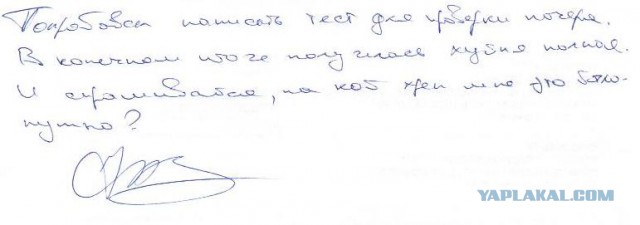 Попробовал написать тест для проверки почерка.
В конечном итоге получилась хуйня полная.
И спрашивается, на кой хрен мне это было
нужно?
YAPLAKAL.COM